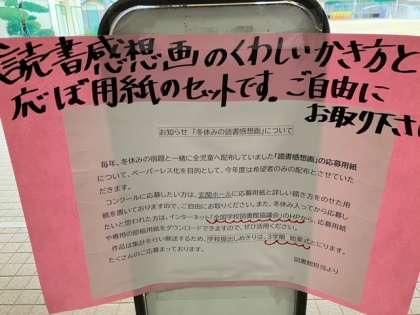 読書感想画のくわしいかき方と
応ぼ用紙のセットです。ご自由に
お取り下さ
お知らせ 「冬休みの読書感想画」について
毎年、冬休みの宿題と一緒に全児童へ配布していました「読書感想画」の応募用紙
について、ペーパーレス化を目的として、今年度は希望者のみの配布とさせていた
だきます。
コンクールに応募したい方は、玄関ホールに応募用紙と詳しい描き方をのせた用
紙を置いておりますので、ご自由にお取りください。また、冬休み入ってから応募し
たいと思われた方は、インターネット「全国学校図書館協議会」のHPから、応募用紙
や専用の原稿用紙をダウンロードできますので、ぜひ活用ください。
作品は集計を行い郵送するため、学校提出しめきりは、3学期 始業式とになります。
たくさんのご応募まっております。
図書館担当より